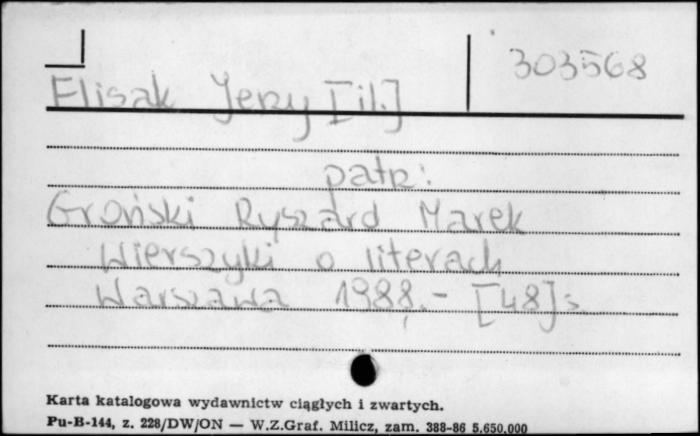 303568
Flisak Jerzy [il.]
patrz:
Groński Ryszard Marek
Wierszyki o literach
Warszawa 1988.- [48]s.
Karta katalogowa wydawnictw ciągłych i zwartych.
Pu-B-144, z. 228/DW/ON — W.Z.Graf. Milicz, zam. 388-86 5.650.000